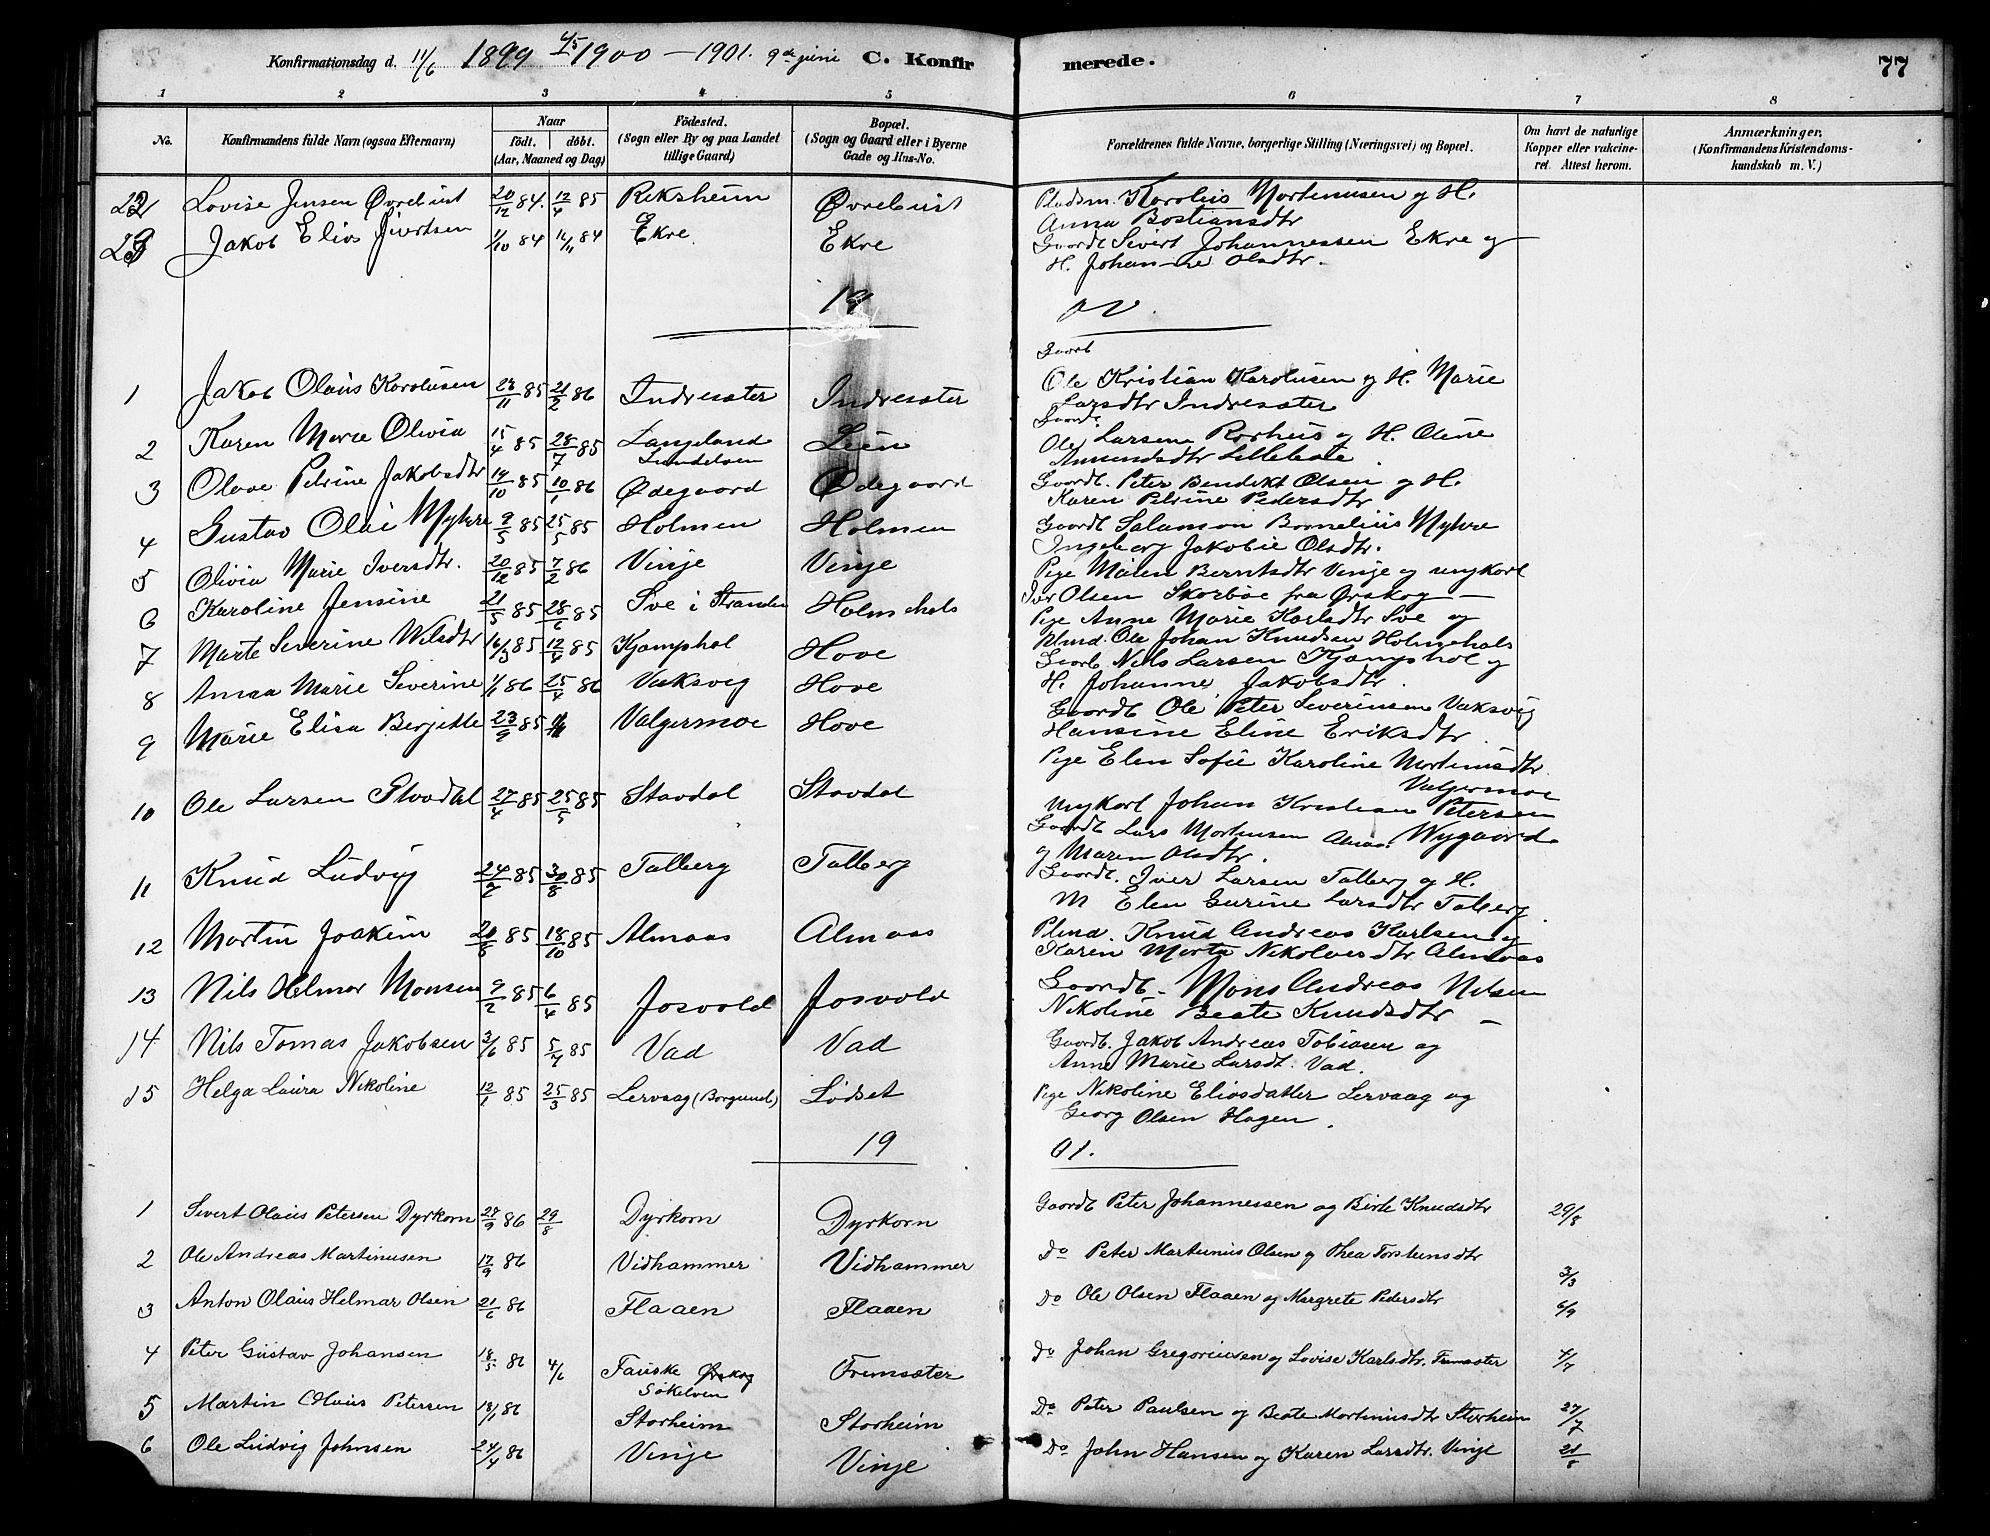 Konfirmationsdag d. 11/6 1899 4/5 1900 — 1901. 9de juni C. Konfirmerede. 77
1 2 3 4 5 6 7 8
No. Konfirmandens fulde Navn (ogsaa Efternavn) Naar födt. döbt. (Aar, Maaned og Dag) Födested. (Sogn eller By og paa Landet tillige Gaard) Bopæl. (Sogn og Gaard eller i Byerne Gade og Hus-No. Forældrenes fulde Navne, borgerlige Stilling (Næringsvei) og Bopæl. Om havt de naturlige Kopper eller vakcineret. Attest herom. Anmærkninger, (Konfirmandens Kristendomskundskab m. V.)
22 Lovise Jensen Øvrebust 20/12 84. 12/4 85 Reksheim Øvrebust Pladsm. Karolius Mortinusen og H.
Anna Bastiansdtr
23 Jakob Elias Sivertsen 1/10 84 16/11 84 Ekre Ekre Gaardb Sivert Johannessen Ekre og
H. Johanne Olsdtr.
19 00.
Gaarb
1 Jakob Olaus Karolusen 23/11 85 21/2 86 Indresæter Indresæter Ole Kristian Karolusen og H. Marie
Larsdtr Indresæter
Gaardb
2 Karen Marie Olivia 15/4 85 28/7 85 Langeland Leen Ole Larsen Rorhus og H. Oline
Amundsdtr Lillebale
3 Olave Petrine Jakobsdtr 14/10 85 10/1 86 Ødegaard Ødegaard Gaardb. Peter Bendikt Olsen og H.
Karen Petrine Pedersdtr
4 Gustav Olai Myhre 9/5 85 25/5 85 Holmen Holmen Gaardb Salamon Bornelius Myhre
Ingeborg Jakobie Olsdtr.
5 Olivia Marie Iversdtr. 20/12 85 7/2 86 Vinje Vinje Pige Maren Berntsdtr Vinje og ungkarl
Iver Olsen Skorbøe fra Ørskog —
6 Karoline Jensine 21/5 85 28/6 85 Sve i Stranden Holmehals Pige Anne Marie Karlsdtr Sve og
Plmd. Ole Johan Knudsen Holmehals
7 Marte Severine Nilsdtr 16/3 85 12/4 85 Kjamphol Hove Gaarb Nils Larsen Kjamphol og
H. Johanne Jakobsdtr.
8 Anna Marie Severine 1/1 86 25/4 86 Vaksvig Hove Gaardb Ole Peter Severinsen Vaksvig
Hansine Eline Eriksdtr
9 Marie Elisa Berjette 23/9 85 Valgermoe Hove Pige Elen Sofie Karoline Mortinusdtr.
Valgermoe
Ungkarl Johan Kristian Petersen
Nygaard
10 Ole Larsen Stavdal 27/4 85 25/5 85 Stavdal Stavdal Gaardb Lars Mortinusen
og Maren Olsdtr.
11 Knud Ludvig 24/7 85 30/8 85 Talberg Talberg Gaardb. Iver Larsen Talberg og H.
M Elen Gurine Larsdtr Talberg
12 Martin Joakim 20/6 85 18/10 85 Almaas Almaas Plmd. Knud Andreas Karlsen og
Karen Marta Nikolaisdtr Almaas
13 Nils Helmer Monsen 9/2 85 6/4 85 Josvold Josvold Gaardb. Mons Andreas Nilsen
Nikoline Beate Knudsdtr —
14 Nils Tomas Jakobsen 3/6 85 5/7 85 Vad Vad Gaardb. Jakob Andreas Tobiasen og
Anne Marie Larsdt. Vad.
15 Helga Laura Nikoline 12/1 85 25/3 85 Lervaag (Borgund) Lødset Pige Nikoline Eliasdatter Lervaag og
Georg Olsen Hagen.
19 01.
1 Sivert Olaus Petersen Dyrkorn 28/9 86 29/8 Dyrkorn Dyrkorn Gaardb Peter Johannessen og Birte Knudsdtr 29/8
2 Ole Andreas Martinusen 17/9 86 Vidhammer Vidhammer Do Peter Martinus Olsen og Thea Torstensdtr 3/3
3 Anton Olaus Helmar Olsen 21/6 86 Flaaen Flaaen Do Ole Olsen Flaaen og Margrete Pedersdtr 6/9
4 Peter Gustav Johansen 18/5 86 4/6 Fauske Ørskog Søkelven Fremsæter Do Johan Gregoriusen og Lovise Karlsdtr. Fremsæter 4/7
5 Martin Olaus Petersen 18/1 86 Storheim Storheim Do Peter Paulsen og Beate Mortinusdtr Storheim 27/7
6 Ole Ludvig Johnsen 24/4 86 Vinje Vinje Do John Hansen og Karen Larsdtr. Vinje 21/8